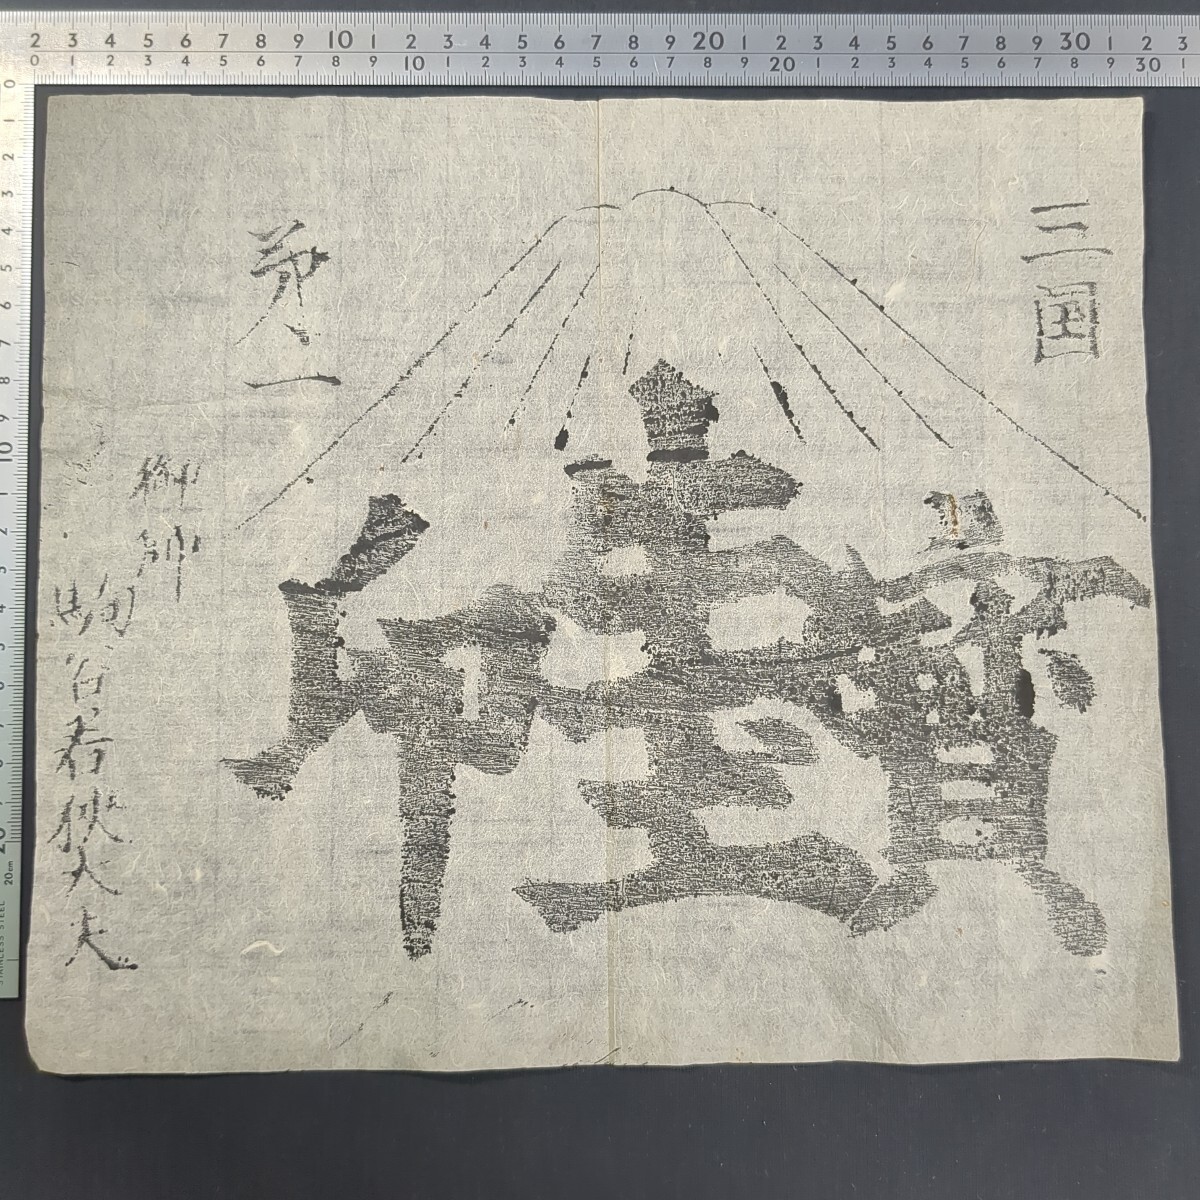 三国
第一
牛
玉
寶
印
御師
駒谷若狭大夫
2 3 4 5 6 7 8 9 10 1 2 3 4 5 6 7 8 9 20 1 2 3 4 5 6 7 8 9 30 1 2 3
0 1 2 3 4 5 6 7 8 9 10 1 2 3 4 5 6 7 8 9 20 1 2 3 4 5 6 7 8 9 30 1
20cm
STAINLESS STEEL